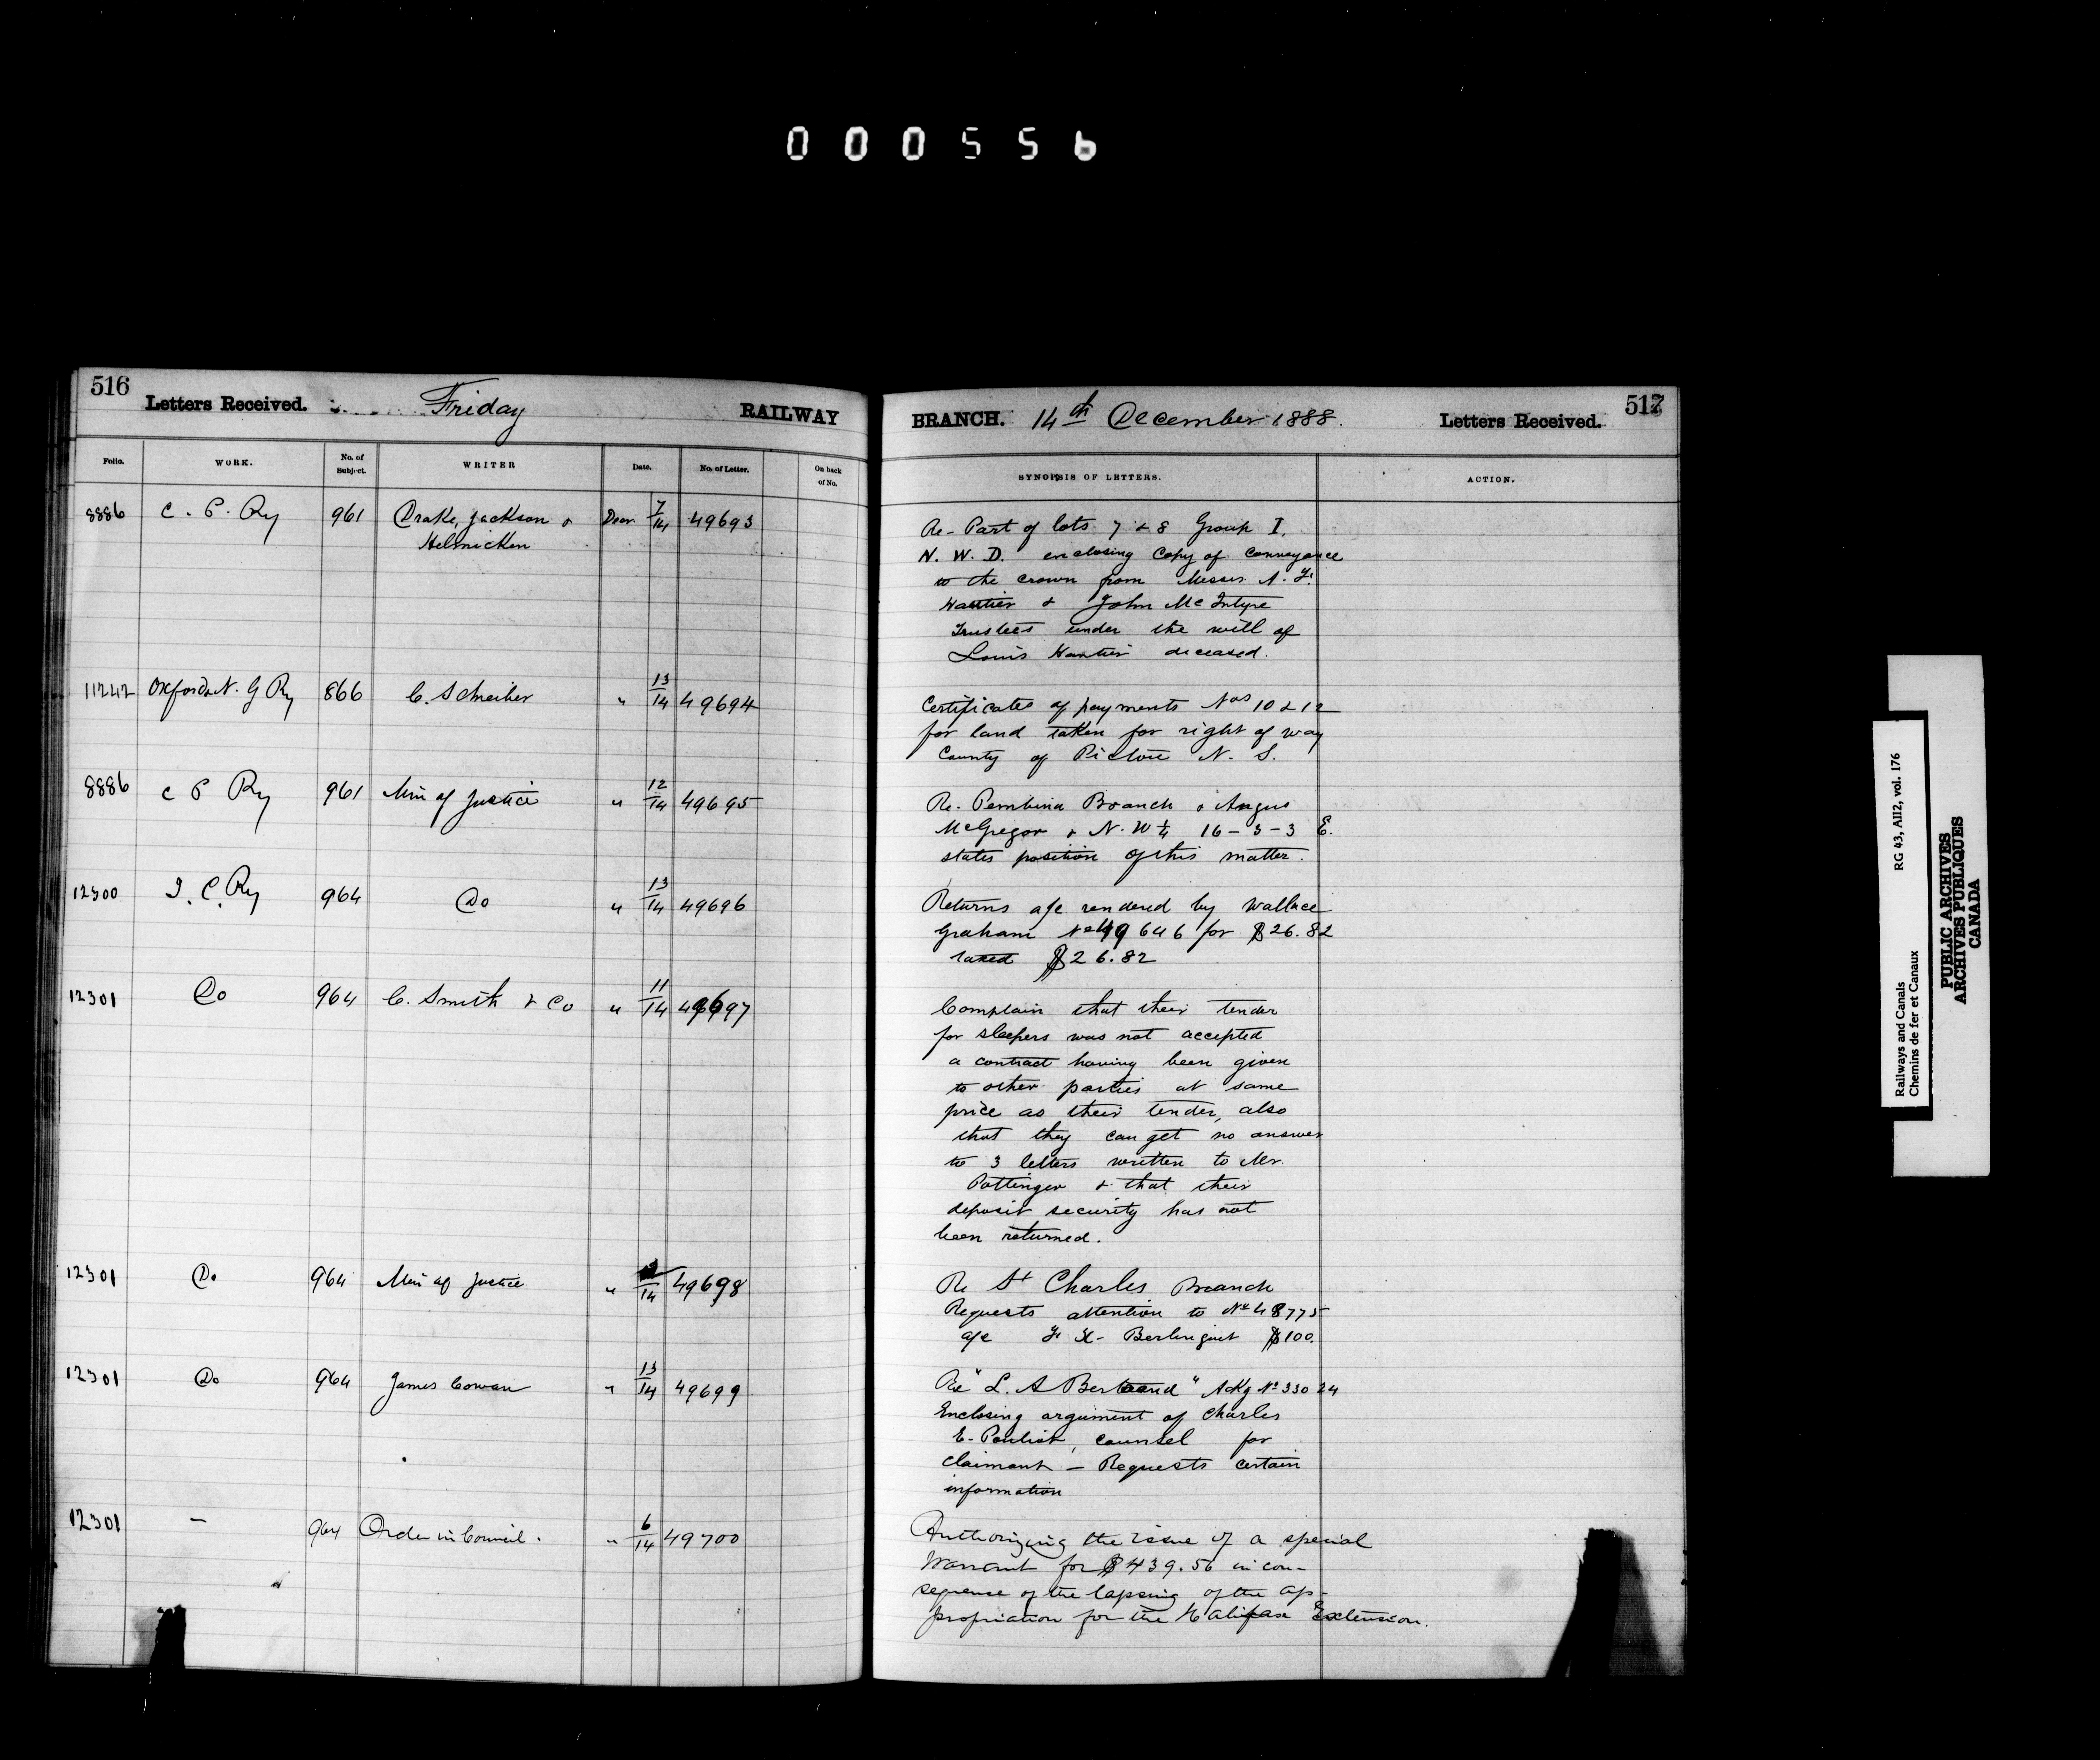 000556
516
Letters Received.
Friday
RAILWAY
Folio.
WORK.
No. of Subject.
WRITER
Date.
No. of Letter.
On back of No.
8886 C. P. Ry 961 Drake, Jackson & Decr 7/14 49693
Helmcken
11242 Oxford & N. G Ry 866 C. Schreiber " 13/14 49694
8886 C P Ry 961 Min of Justice " 12/14 49695
12300 I. C. Ry 964 Do " 13/14 49696
12301 Do 964 C. Smith & Co " 11/14 49697
12301 Do 964 Min of Justice " 14 49698
12301 Do 964 James Cowan " 13/14 49699
12301 — 964 Order in Council. " 6/14 49700
BRANCH. 14th December 1888.
Letters Received.
517
SYNOPSIS OF LETTERS.
ACTION.
Re- Part of lots 7 & 8 Group I.
N. W. D. enclosing Copy of conveyance
to the crown from Messrs A. F.
& John McIntyre
Trustees under the will of
Louis deceased.
Certificates of payments Nos 10 & 12
for land taken for right of way
County of Pictou N. S.
Re. Pembina Branch & Angus
McGregor & N. W ¼ 16-3-3 E.
states position of this matter.
Returns a/c rendered by Wallace
Graham No 49646 for $26.82
taxed $26.82
Complain that their tender
for sleepers was not accepted
a contract having been given
to other parties at same
price as their tender, also
that they can get no answer
to 3 letters written to Mr.
Pottinger & that their
deposit security has not
been returned.
Re St Charles Branch
Requests attention to No 48775
a/c F. X. Berlinguet $100.
Re "L. A Bertrand" Ackg No 33024
Enclosing argument of Charles
E. Pouliot, counsel for
claimant — Requests certain
information
Authorizing the issue of a special
Warrant for $439.56 in con-
sequence of the lapsing of the ap-
propriation for the Halifax Extension.
Railways and Canals RG 43, AII2, vol. 176
Chemins de fer et Canaux
PUBLIC ARCHIVES
ARCHIVES PUBLIQUES
CANADA